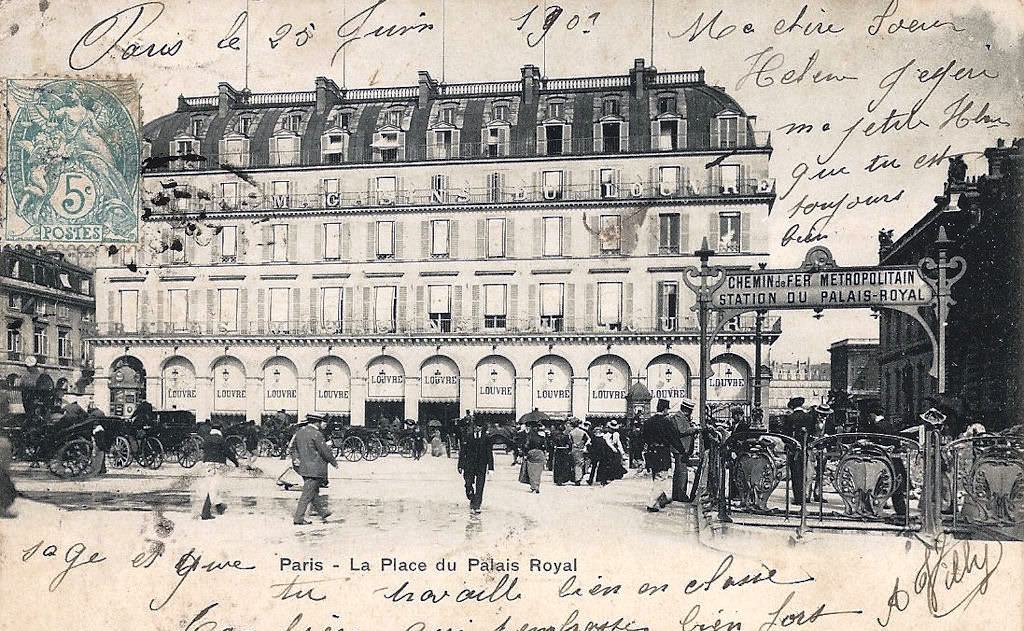 Paris le 25 Juin 190
Ma chère Soeur
Helen
ma petite
que tu est
toujours
bien
5c
POSTES
MAGASINS DU LOUVRE
CHEMIN de FER METROPOLITAIN
STATION DU PALAIS-ROYAL
LOUVRE LOUVRE LOUVRE LOUVRE LOUVRE LOUVRE LOUVRE LOUVRE LOUVRE LOUVRE LOUVRE
sage et que
Paris - La Place du Palais Royal
tu travaille bien en classe
bien qui t'embrasse bien fort